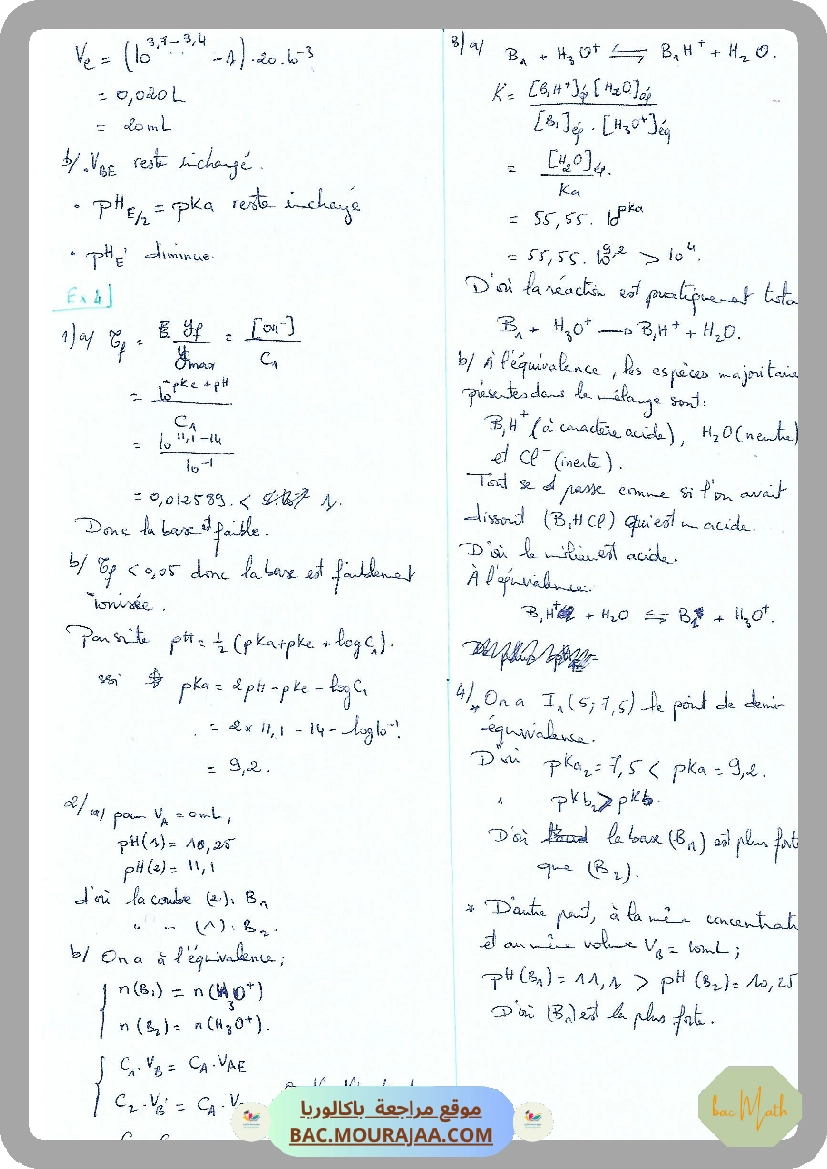 Ve = (10^{3,7-3,4} - 1).20.10^{-3}
= 0,020L
= 20mL
b/ . V_{BE} reste inchangé.
. pH_{E/2} = pKa reste inchangé
. pH_E diminue.
Ex 4]
1)a/ τ_f = y_f / y_{max} = [OH^-] / C_1
= 10^{-pKe+pH} / C_1
= 10^{11,1-14} / 10^{-1}
= 0,012589. < 1.
Donc la base est faible.
b/ τ_f < 0,05 donc la base est faiblement
ionisée.
Par suite pH = 1/2 (pKa+pKe + log C_1).
pKa = 2pH - pKe - log C_1
= 2 x 11,1 - 14 - log 10^{-1}.
= 9,2.
2/a/ pour V_A = 0mL,
pH(1) = 10,25
pH(2) = 11,1
d'où la courbe (2): B_1
" " (1): B_2.
b/ On a à l'équivalence;
n(B_1) = n(H_3O^+)
n(B_2) = n(H_3O^+).
C_1.V_B = C_A.V_{AE}
C_2.V_B' = C_A.V
3/a/ B_1 + H_3O^+ ⇌ B_1H^+ + H_2O.
K = [B_1H^+]_{éq}[H_2O]_{éq} / [B_1]_{éq}.[H_3O^+]_{éq}
= [H_2O]_{éq} / Ka
= 55,55. 10^{pKa}
= 55,55. 10^{9,2} > 10^4.
D'où la réaction est pratiquement tota
B_1 + H_3O^+ → B_1H^+ + H_2O.
b/ À l'équivalence, les espèces majoritaire
présentes dans le mélange sont:
B_1H^+ (à caractère acide), H_2O (neutre)
et Cl^- (inerte).
Tout se passe comme si l'on avait
dissout (B_1HCl) qui est un acide.
D'où le milieu est acide.
À l'équivalence.
B_1H^+ + H_2O ⇌ B_1 + H_3O^+.
4/ * On a I_1(5; 7,5) le point de demi-
équivalence.
D'où pKa_2 = 7,5 < pKa = 9,2.
pKb_2 > pKb.
D'où la base (B_1) est plus forte
que (B_2).
* D'autre part, à la même concentrati
et au même volume V_B = 10mL;
pH(B_1) = 11,1 > pH(B_2) = 10,25
D'où (B_1) est la plus forte.
موقع مراجعة باكالوريا
BAC.MOURAJAA.COM
bac Math